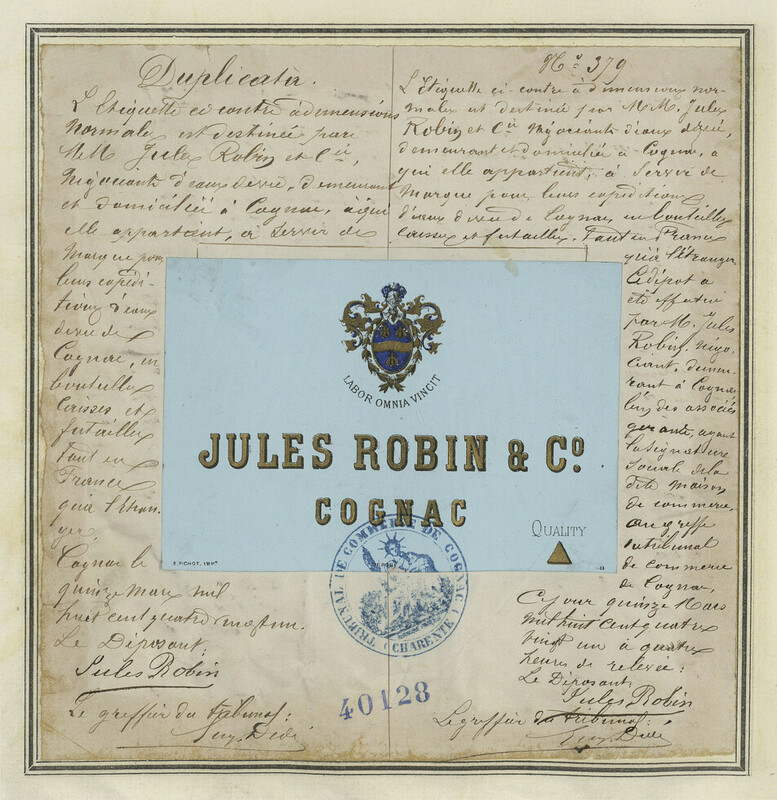 Duplicata.
L'Etiquette ci contre à dimensions
Normales est destinée par
MM Jules Robin et Cie,
Négociants d'eaux de vie, demeurant
et domiciliés à Cognac, à qui
elle appartient, à servir de
Marque pour
leurs expédi-
tions d'eaux
de vie de
Cognac, en
bouteilles
Caisses et
futailles
tant en
France
qu'à l'étran-
ger.
Cognac le
quinze Mars mil
huit cent quatre vingt un.
Le Déposant:
Jules Robin
Le greffier du tribunal:
No 379
L'Etiquette ci-contre à dimensions nor-
males est destinée par MM. Jules
Robin et Cie Négociants d'eaux de vie,
demeurant et domiciliés à Cognac, à
qui elle appartient, à Servir de
Marque pour leurs expéditions
d'eaux de vie de Cognac, en bouteilles
Caisses et futailles. Tant en France
qu'à l'étranger
Ce dépôt a
été effectué
par M. Jules
Robin, négo-
ciant, demeu-
rant à Cognac
l'un des associés
gérants, ayant
la signature
sociale de la
dite maison
de commerce,
au greffe
du tribunal
de commerce
de Cognac,
Ce jour quinze Mars
mil huit cent quatre
vingt un à quatre
heures de relevée:
Le Déposant
Jules Robin
Le greffier du tribunal:
LABOR OMNIA VINCIT
JULES ROBIN & Co
COGNAC
QUALITY
F. PICHOT, IMPR
TRIBUNAL DE COMMERCE DE COGNAC
(CHARENTE)
40128